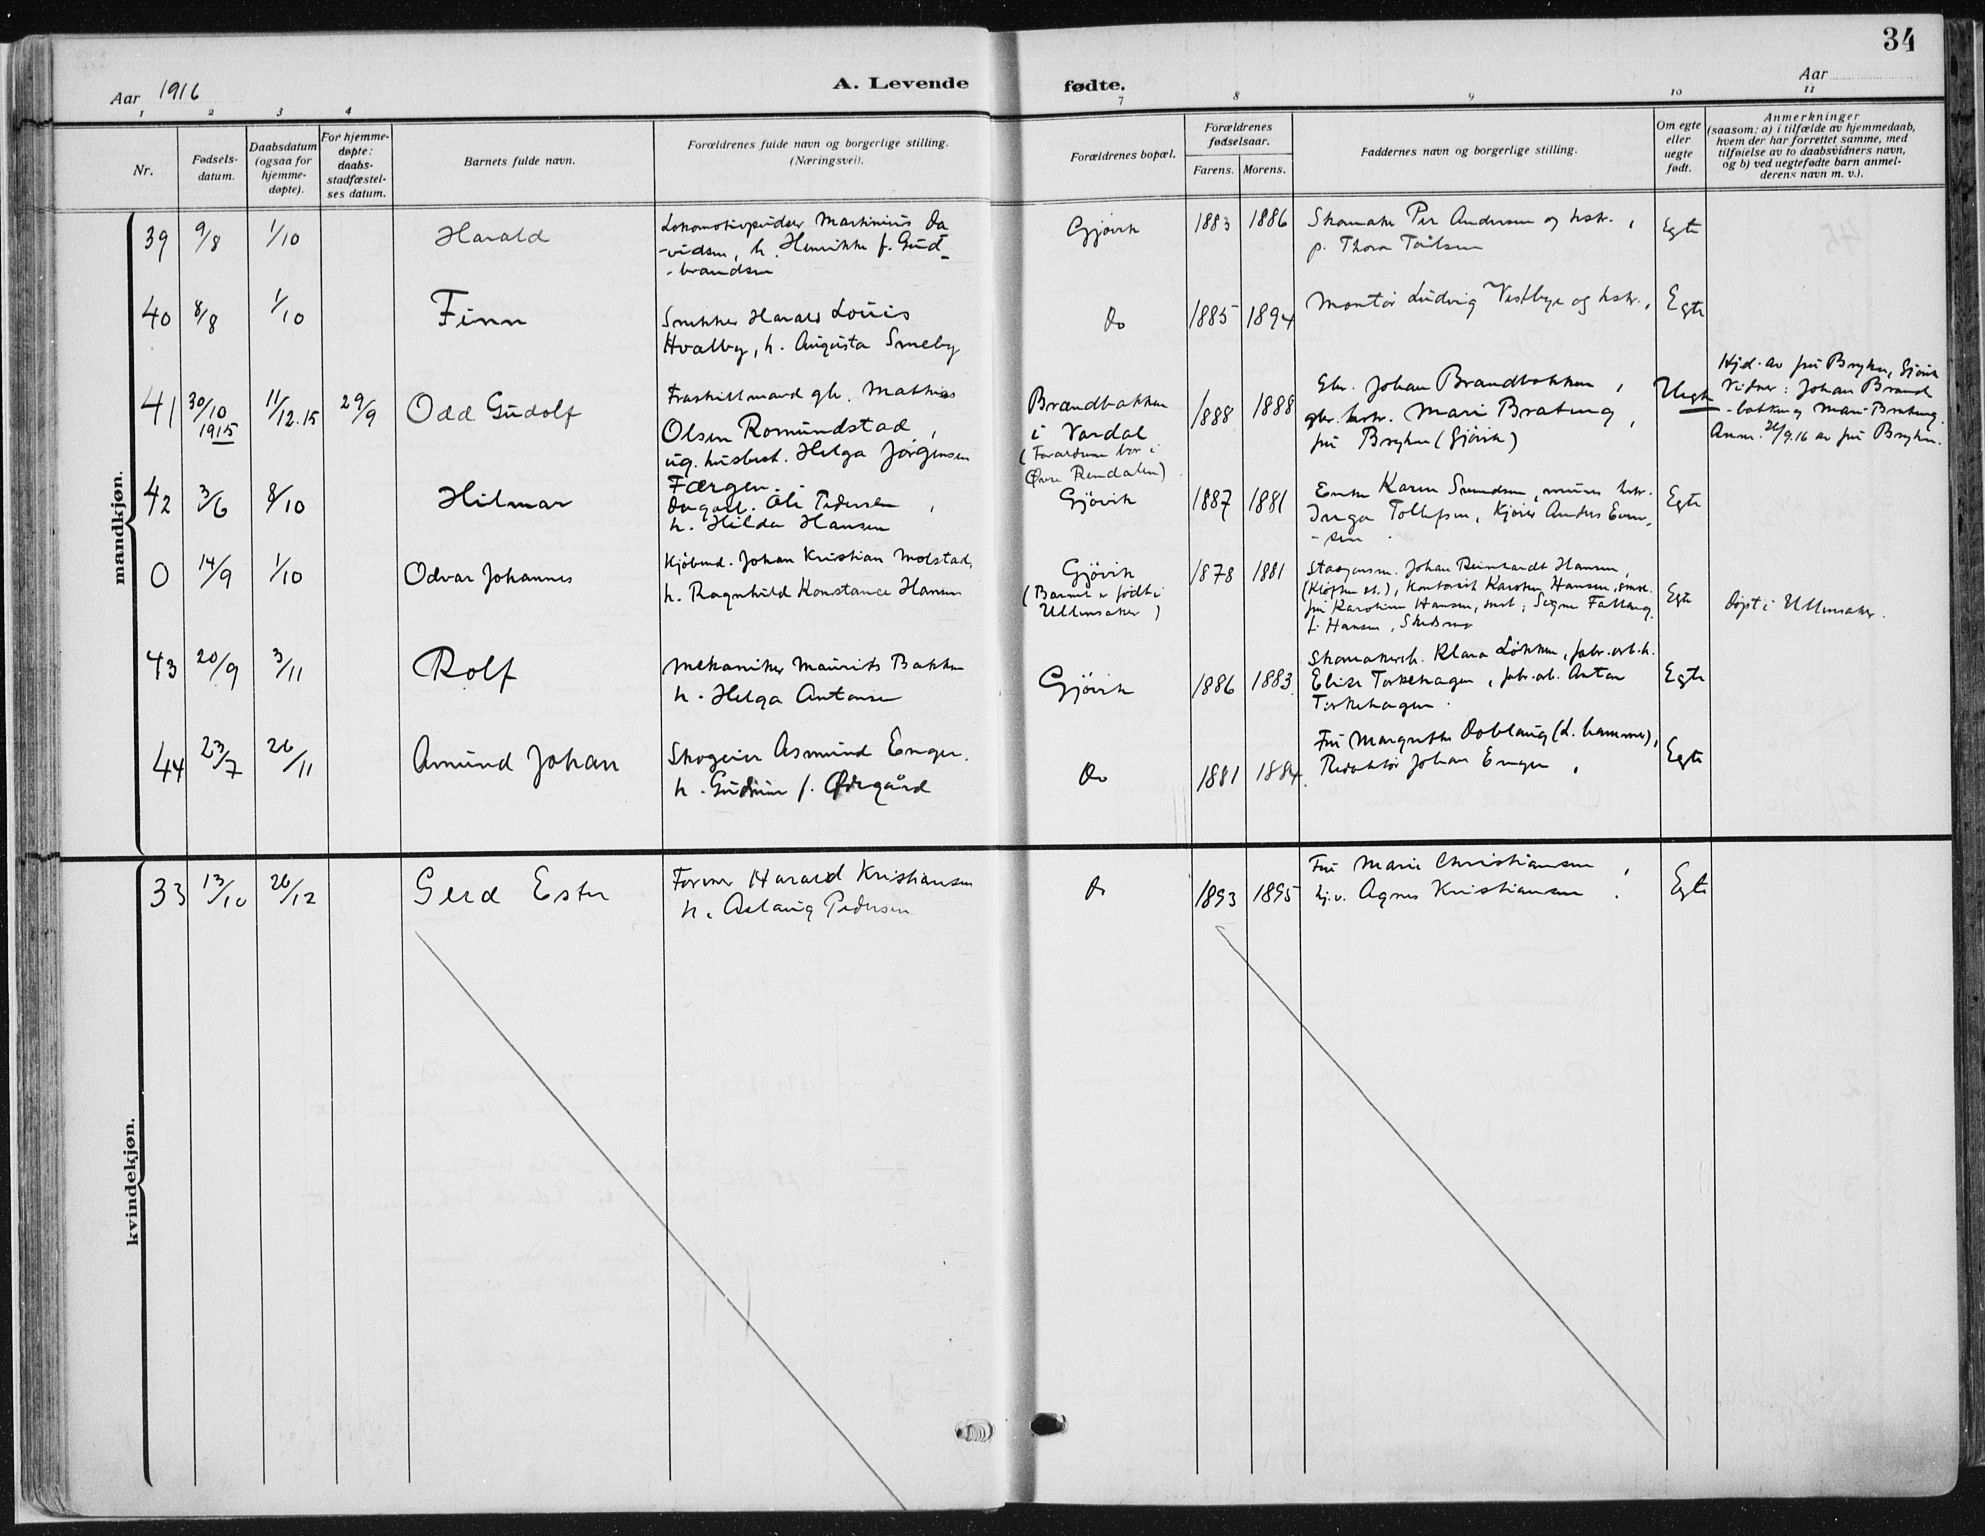 34
Aar 1916
A. Levende fødte.
Aar
1 2 3 4 7 8 9 10 11
Nr.
Fødsels-
datum.
Daabsdatum
(ogsaa for
hjemme-
døpte).
For hjemme-
døpte:
daabs-
stadfæstel-
ses datum.
Barnets fulde navn.
Forældrenes fulde navn og borgerlige stilling.
(Næringsvei).
Forældrenes bopæl.
Forældrenes
fødselsaar.
Farens. Morens.
Faddernes navn og borgerlige stilling.
Om egte
eller
uegte
født.
Anmerkninger
(saasom: a) i tilfælde av hjemmedaab,
hvem der har forrettet samme, med
tilføielse av to daabsvidners navn,
og b) ved uegtefødte barn anmel-
derens navn m. v.).
mandkjøn.
39 9/8 1/10 Harald
Lokomotivpudser Martinius Da
-vidsen, h. Henrikke f. Gud
-brandsen
Gjøvik 1883 1886
Skomaker Per Andersen og hstr.,
p. Thora
Egte
40 8/8 1/10 Finn
Snekker Harald Louis
Hvalby, h. Augusta Smeby
Do 1885 1894
Montør Ludvig Vestbye og hstr.,
Egte
41 30/10 1915 11/12.15 29/9 Odd Gudolf
Fraskilt mand gb. Mathias
Olsen Romundstad,
ug. husbest. Helga Jørgensen
Brandbakken
i Vardal
(Forældrene bor i
Øvre Rendalen)
1888 1888
Gbr. Johan Brandbakken,
gbr. hstr. Mari Brateng,
frk Bryhn (Gjøvik)
Uegte
Hjd. av frk Bryhn, Gjøvik
Vidner: Johan Brand
-bakken og Mari Brateng.
Anm. 26/9.16 av frk Bryhn.
42 3/6 8/10 Hilmar
Færgem.
Dagarb. Ole Pedersen,
h. Hilda Hansen
Gjøvik 1887 1881
Enke Karen Svendsen, hstr.
Inga Tollefsen, Kjører Anders Even,
-sen
Egte
0 14/9 1/10 Odvar Johannes
Kjøbmd. Johan Kristian Molstad,
h. Ragnhild Konstance Hansen
Gjøvik
(Barnet er født i
Ullensaker)
1878 1881
Stasjonsm. Johan Reinhardt Hansen,
(Kløften st.), Kontorist Karsten Hansen,
frk Karoline Hansen, Signe
f. Hansen, Skedsmo
Egte
døpt i Ullensaker.
43 20/9 3/11 Rolf
Mekaniker Maurits Bakken
h. Helga Antonsen
Gjøvik 1886 1883
Skomakersh. Klara Løkken, fabr.arb.h.
Elise Torkehagen, fabr.arb. Anton
Torkehagen.
Egte
44 23/7 26/11 Amund Johan
Skogeier Asmund Enger.
h. Gudrun f. Ødegård
Do 1881 1884
Fru Margrethe Doblaug (L. hammer),
Redaktør Johan Enger,
Egte
kvindekjøn.
33 13/10 26/12 Gerd Ester
Former Harald Kristiansen
h. Aslaug Pedersen
Do 1893 1895
Fru Marie Christiansen,
hj.v. Agnes Kristiansen.
Egte